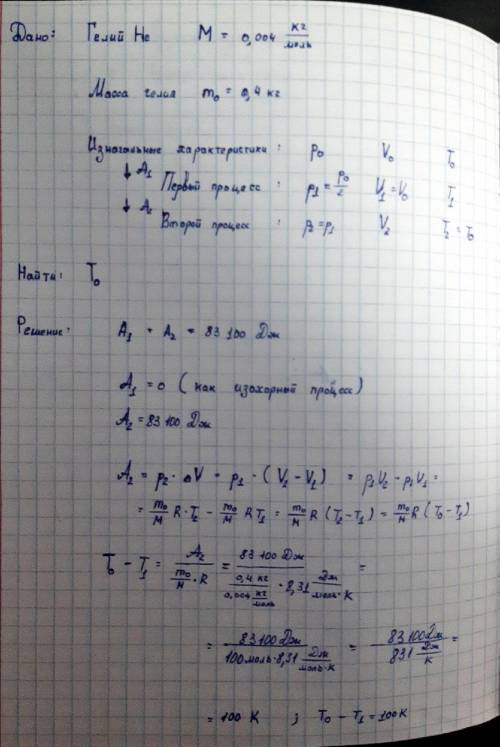 Дано: Гелий He M = 0,004 кг/моль
Масса гелия m₀ = 0,4 кг
Изначальные характеристики: p₀ V₀ T₀
↓ A₁
Первый процесс: p₁ = p₀/2 V₁ = V₀ T₁
↓ A₂
Второй процесс: p₂ = p₁ V₂ T₂ = T₀
Найти: T₀
Решение: A₁ + A₂ = 83 100 Дж
A₁ = 0 (как изохорный процесс)
A₂ = 83 100 Дж
A₂ = p₂ · ΔV = p₁ · (V₂ - V₁) = p₁V₂ - p₁V₁ =
= m₀/M R · T₂ - m₀/M R T₁ = m₀/M R (T₂ - T₁) = m₀/M R (T₀ - T₁)
T₀ - T₁ = A₂ / (m₀/M · R) = 83 100 Дж / (0,4 кг / 0,004 кг/моль · 8,31 Дж/моль·К) =
= 83100 Дж / (100 моль · 8,31 Дж/моль·К) = 83100 Дж / (831 Дж/К) =
= 100 К ; T₀ - T₁ = 100 К